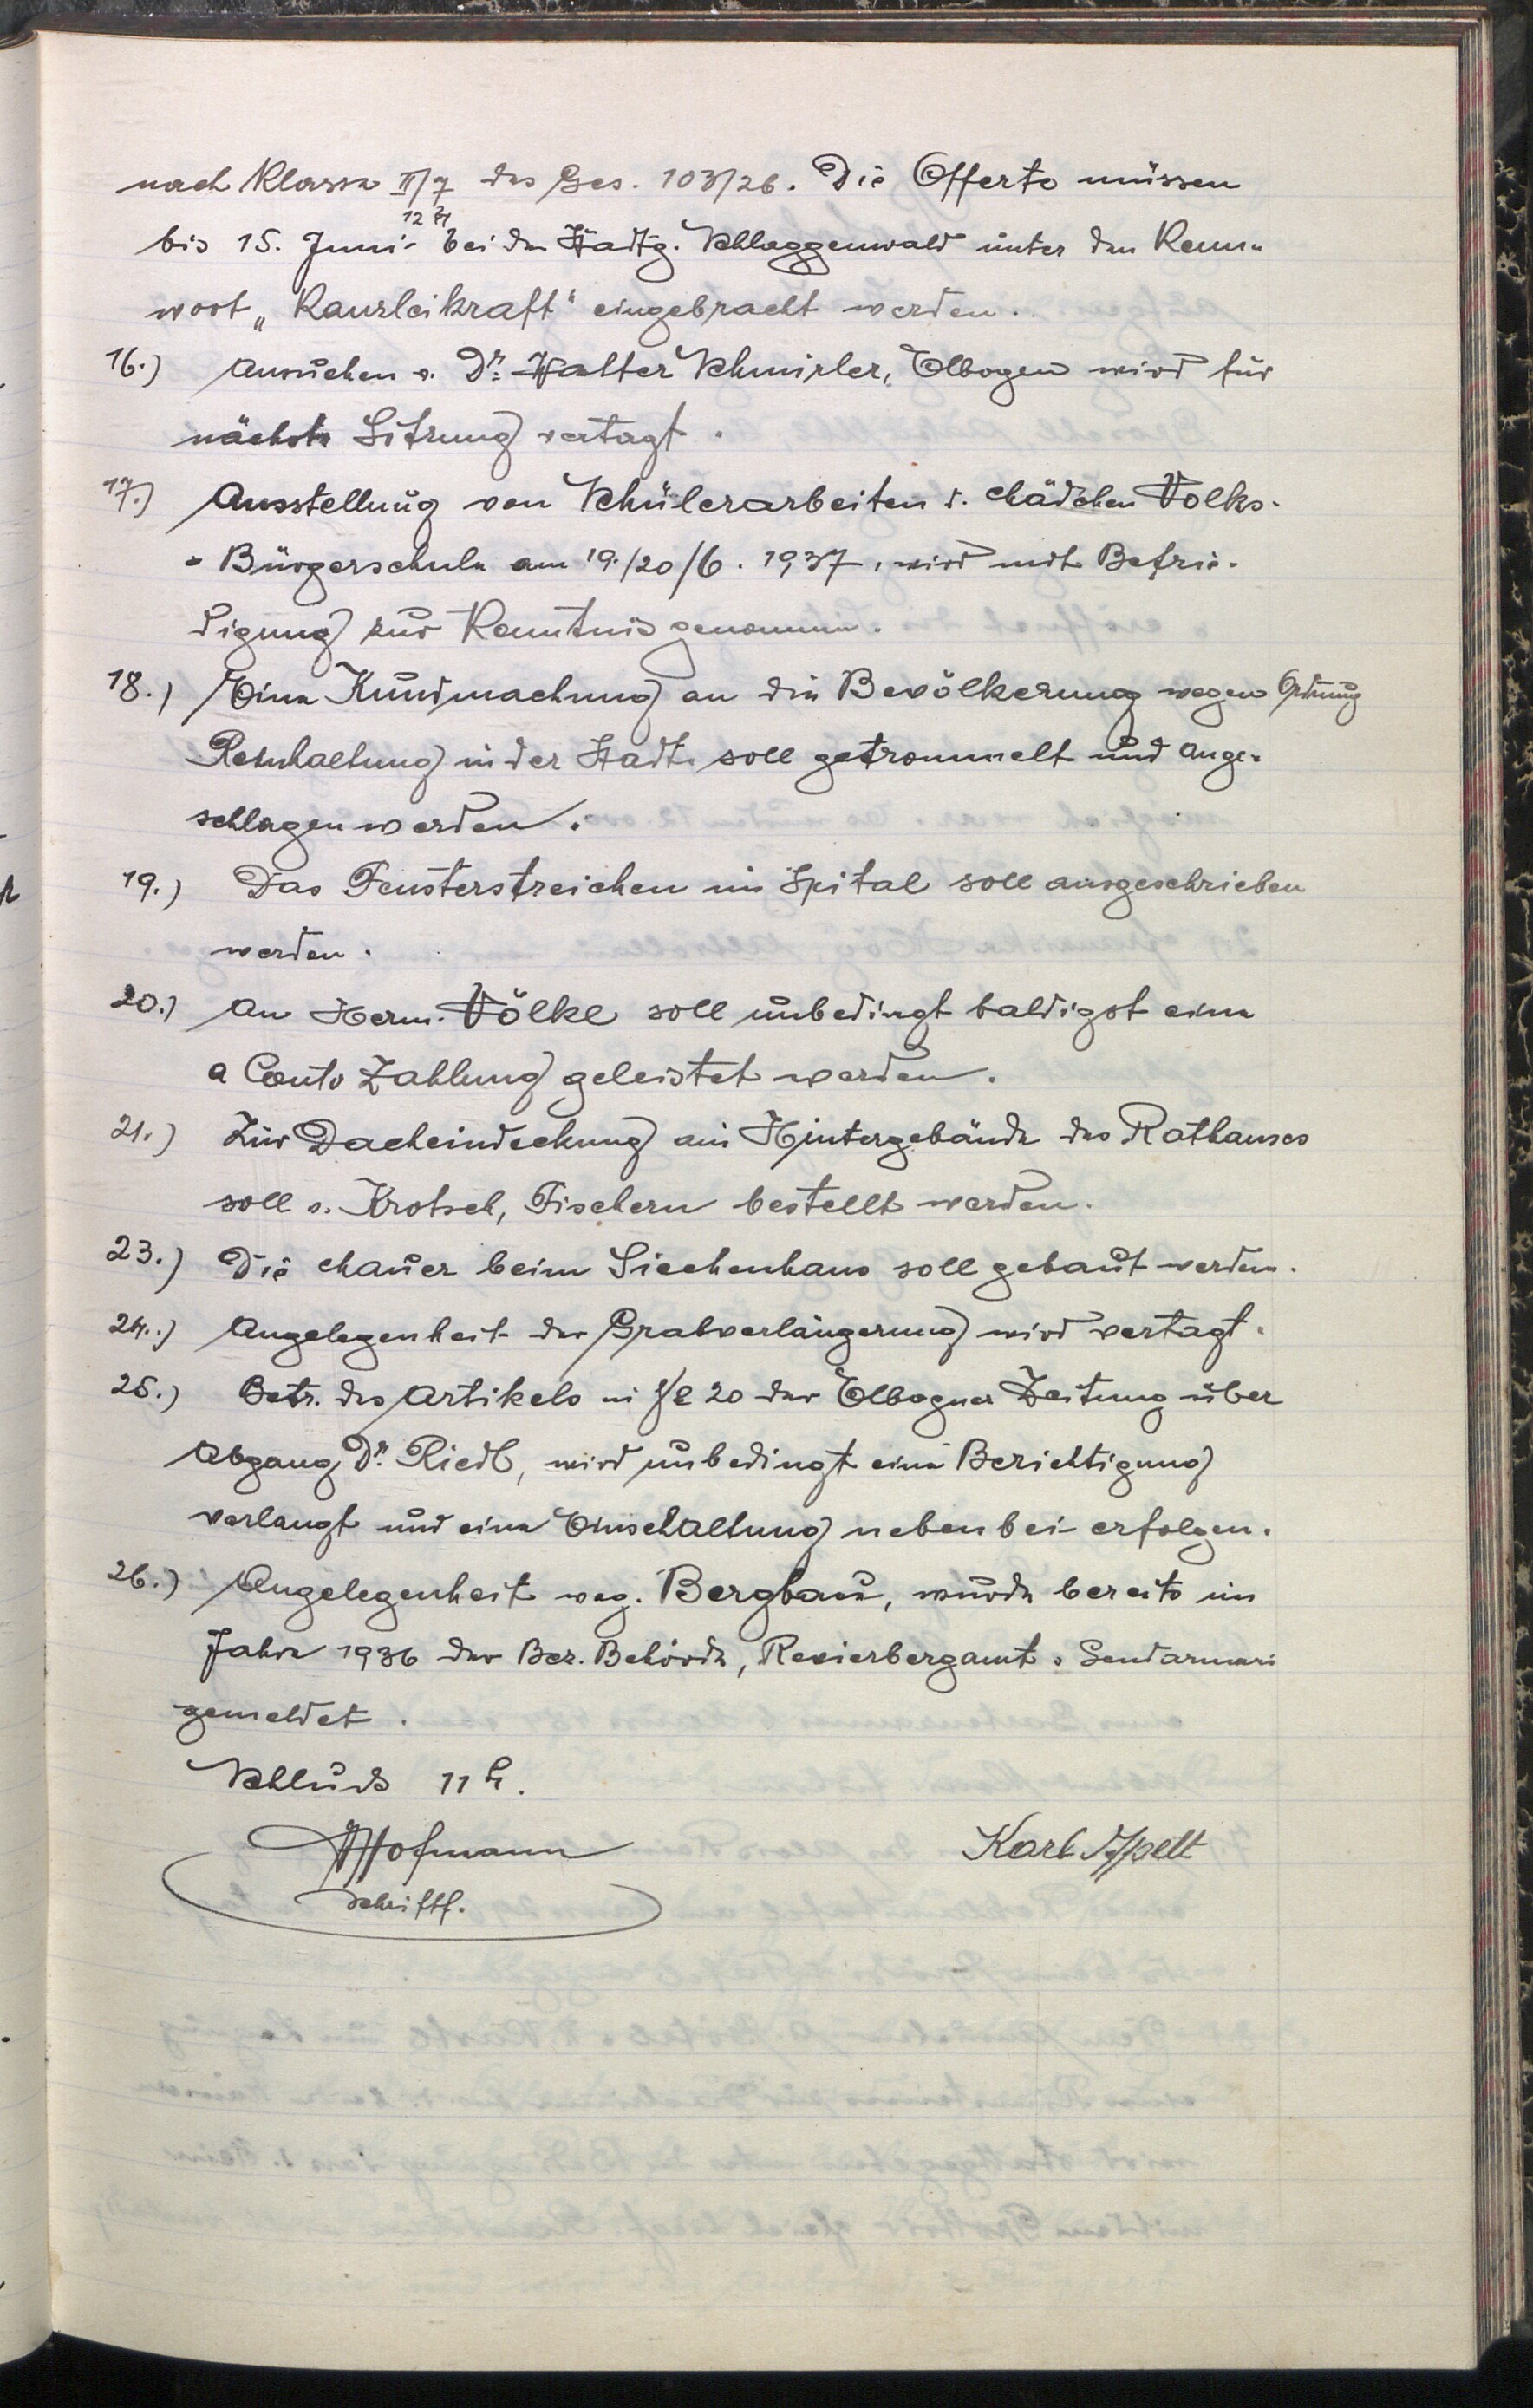 nach Klasse II/7 des Ges. 103/26. Die Offerte müssen
bis 15. Juni 12 h bei der Stadtg. Schlaggenwald unter den Kenn-
wort „Kanzleikraft" eingebracht werden.
16.) Ansuchen v. Dr. Walter Schmirler, Elbogen wird für
nächste Sitzung vertagt.
17.) Ausstellung von Schülerarbeiten d. Mädchen Volks-
- Bürgerschule am 19./20/6. 1937, wird mit Befrie-
digung zur Kenntnis genommen.
18.) Eine Kundmachung an die Bevölkerung wegen Ordnung
Reinhaltung in der Stadt soll getrommelt und ange-
schlagen werden.
19.) Das Fensterstreichen im Spital soll ausgeschrieben
werden.
20.) An Herm. Völkl soll unbedingt baldigst eine
a Conto Zahlung geleistet werden.
21.) Zur Dacheindeckung am Hintergebäude des Rathauses
soll v. Krotsch, Fischern bestellt werden.
23.) Die Mauer beim Siechenhaus soll gebaut werden.
24.) Angelegenheit der Grabverlängerung wird vertagt.
25.) Betr. des Artikels in № 20 der Elbogner Zeitung über
Abgang Dr. Riedl, wird unbedingt eine Berichtigung
verlangt und eine Einschaltung nebenbei erfolgen.
26.) Angelegenheit weg. Bergbau, wurde bereits im
Jahre 1936 der Bez. Behörde, Revierbergamt u Gendarmeri
gemeldet.
Schluss 11 h.
Hofmann Karl Ippelt
Schriftf.